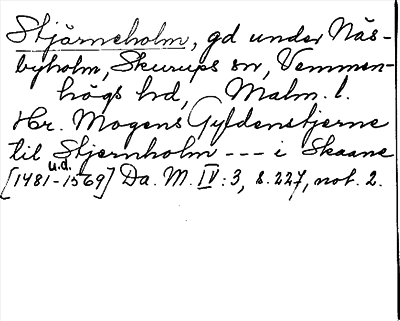 Stjärneholm, gd under Näs-
byholm, Skurups sn, Vemmen-
högs hd, Malm. l.
Hr. Mogens Gyldenstjerne
til Stjernholm --- i Skaane
u.d.
[1481-1569] Da. M. IV:3, s. 227, not. 2.